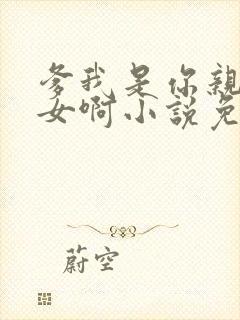 爹我是你親
女啊小說免
蔚空